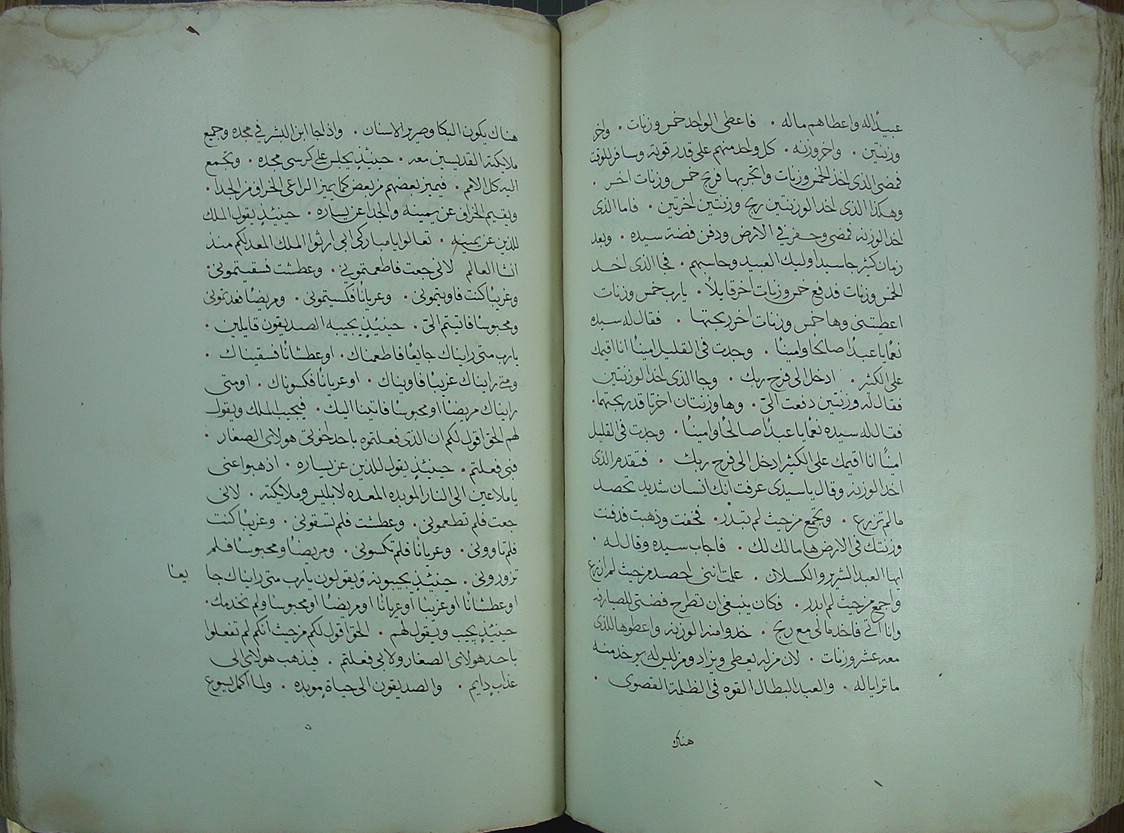 عبيدًا له واعطاهم ماله ۰ فاعطى الواحد خمس وزنات ۰ واخر
وزنتين ۰ واخر وزنه ۰ كل واحد منهم على قدر قوته وسافر للوقت
فمضى الذى اخذ الخمس وزنات واتجر بها فربح خمس وزنات اخر ۰
وهكذا الذى اخذ الوزنتين ربح وزنتين اخرتين ۰ فاما الذى
اخذ الوزنه فمضى وحفر في الارض ودفن فضة سيده ۰ وبعد
زمان كثير جا سيد اوليك العبيد وحاسبهم ۰ فجا الذى اخد
الخمس وزنات فدفع خمس وزنات اخر قايلًا ۰ يارب خمس وزنات
اعطيتنى وها خمس وزنات اخر ربحتها ۰ فقال له سيده
نعمًا يا عبدًا صالحًا وامينًا ۰ وجدت فى القليل امينًا انا اقيمك
على الكثير ۰ ادخل الى فرح ربك ۰ وجا الذى اخد الوزنتين
فقال له وزنتين دفعت اليّ ۰ وها وزنتان اخرتا قد ربحتهما ۰
فقال له سيده نعمًا يا عبدًا صالحًا وامينًا ۰ وجدت فى القليل
امينًا انا اقيمك على الكثير ادخل الى فرح ربك ۰ فتقدم الذى
اخد الوزنه وقال ياسيدى عرفت انك انسان شديد تحصد
مالم تزرع ۰ وتجمع من حيث لم تبدر ۰ فخفت وذهبت فدفنت
وزنتك فى الارض ها مالك لك ۰ فاجاب سيده وقال له ۰
ايها العبد الشرير والكسلان ۰ علمت اننى احصد من حيث لم ازرع
واجمع من حيث لم ابدر ۰ فكان ينبغى ان تطرح فضتى للصيارفه
وانا اتى فاخد مالى مع ربح ۰ خدوا منه الوزنه واعطوها للذى
معه عشر وزنات ۰ لان من له يعطى ويزاد ومن ليس له يوخد منه
ما تراياله ۰ والعبد البطال القوه فى الظلمة القصوى ۰
هناك
هناك يكون البكا وصرير الاسنان ۰ واذا جا ابن البشر في مجده وجميع
ملايكته القديسين معه ۰ حينيذٍ يجلس على كرسى مجده ۰ وتجمع
اليه كل الامم ۰ فيميز بعضهم من بعض كما يميز الراعى الخراف من الجدا ۰
ويقيم الخراف عن يمينه والجدا عن يساره ۰ حينيذٍ يقول الملك
للذين عن يمينه ۰ تعالوا يا مباركى ابى ارثوا الملك المعد لكم منذ
انشا العالم ۰ لانى جعت فاطعمتمونى ۰ وعطشت فسقيتمونى ۰
وغريبًا كنت فاويتمونى ۰ وعريانًا فكسيتمونى ۰ ومريضًا فعدتمونى
ومحبوسًا فاتيتم اليّ ۰ حينيذٍ يجيبه الصديقون قايلين ۰
يارب متى رايناك جايعًا فاطعمناك ۰ او عطشانًا فسقيناك ۰
ومتى رايناك غريبًا فاويناك ۰ او عريانًا فكسوناك ۰ او متى
رايناك مريضًا او محبوسًا فاتينا اليك ۰ فيجيب الملك ويقول
لهم الحق اقول لكم ان الذى فعلتموه باحد اخوتى هولاى الصغار ۰
فبى فعلتم ۰ حينيذٍ يقول للذين عن يساره ۰ اذهبوا عنى
يا ملاعين الى النار الموبده المعده لابليس وملايكته ۰ لانى
جعت فلم تطعمونى ۰ وعطشت فلم تسقونى ۰ وغريبًا كنت
فلم تاوونى ۰ وعريانًا فلم تكسونى ۰ ومريضًا ومحبوسًا فلم
تزورونى ۰ حينيذٍ يجيبونه ويقولون يارب متى رايناك جا
يعًا
او عطشانًا او غريبًا او عريانًا او مريضًا او محبوسًا ولم نخدمك ۰
حينيذٍ يجيب ويقول لهم ۰ الحق اقول لكم من حيث انكم لم تفعلوا
باحد هولاى الصغار ولا بى فعلتم ۰ فيذهب هولاى الى
عذاب دايم ۰ والصديقون الى حياة موبده ۰ ولما اكمل يسوع